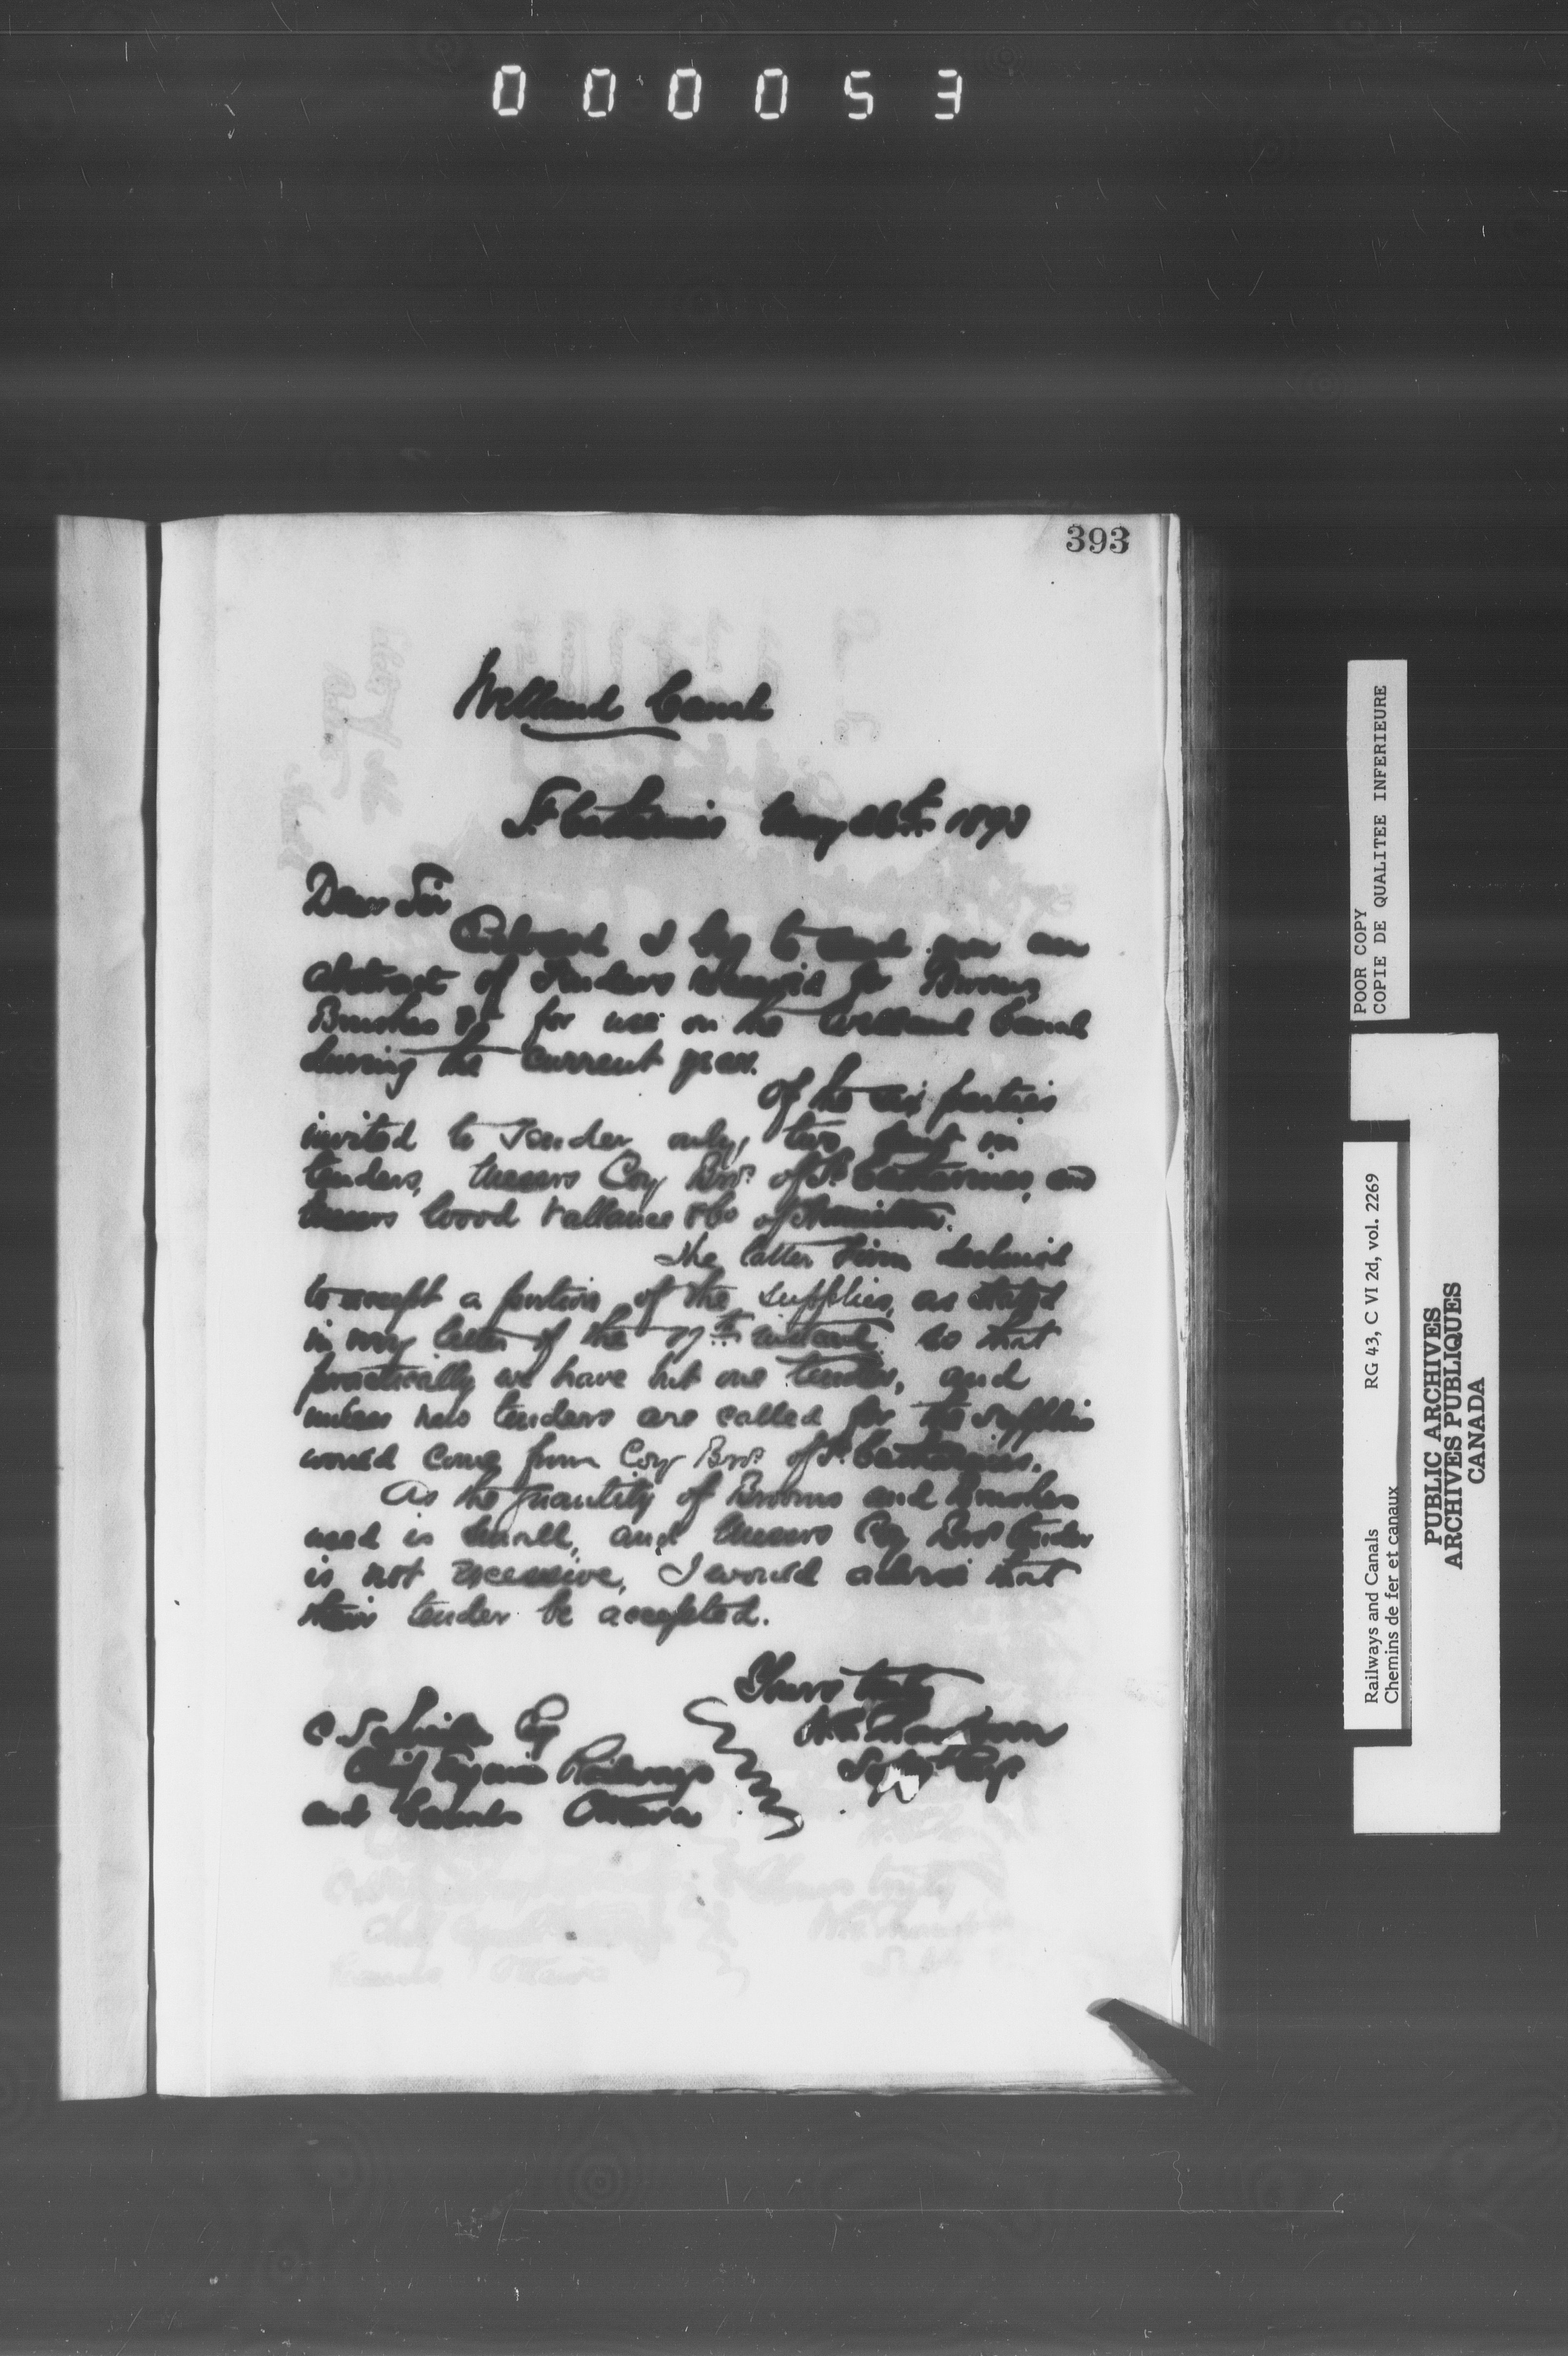 000053
393
Welland Canal
St Catharines May 26th 1893
Dear Sir
Enclosed I beg to send you an
abstract of Tenders received for Brooms
Brushes &c for use on the Welland Canal
during the current year.
Of the six parties
invited to Tender only, two sent in
tenders, Messrs Coy Bros. of St. Catharines, and
Messrs Wood Vallance & Co of Hamilton.
The latter Firm declined
to accept a portion of the supplies, as stated
in my letter of the instant so that
practically we have but one tender, and
unless new tenders are called for the supplies
would come from Coy Bros. of St. Catharines.
As the quantity of Brooms and Brushes
used is small, and Messrs Coy Bros tender
is not excessive, I would advise that
their tender be accepted.
Yours truly
C Schreiber Esq
Chief Engineer Railways
and Canals Ottawa
POOR COPY
COPIE DE QUALITEE INFERIEURE
Railways and Canals RG 43, C VI 2d, vol. 2269
Chemins de fer et canaux
PUBLIC ARCHIVES
ARCHIVES PUBLIQUES
CANADA